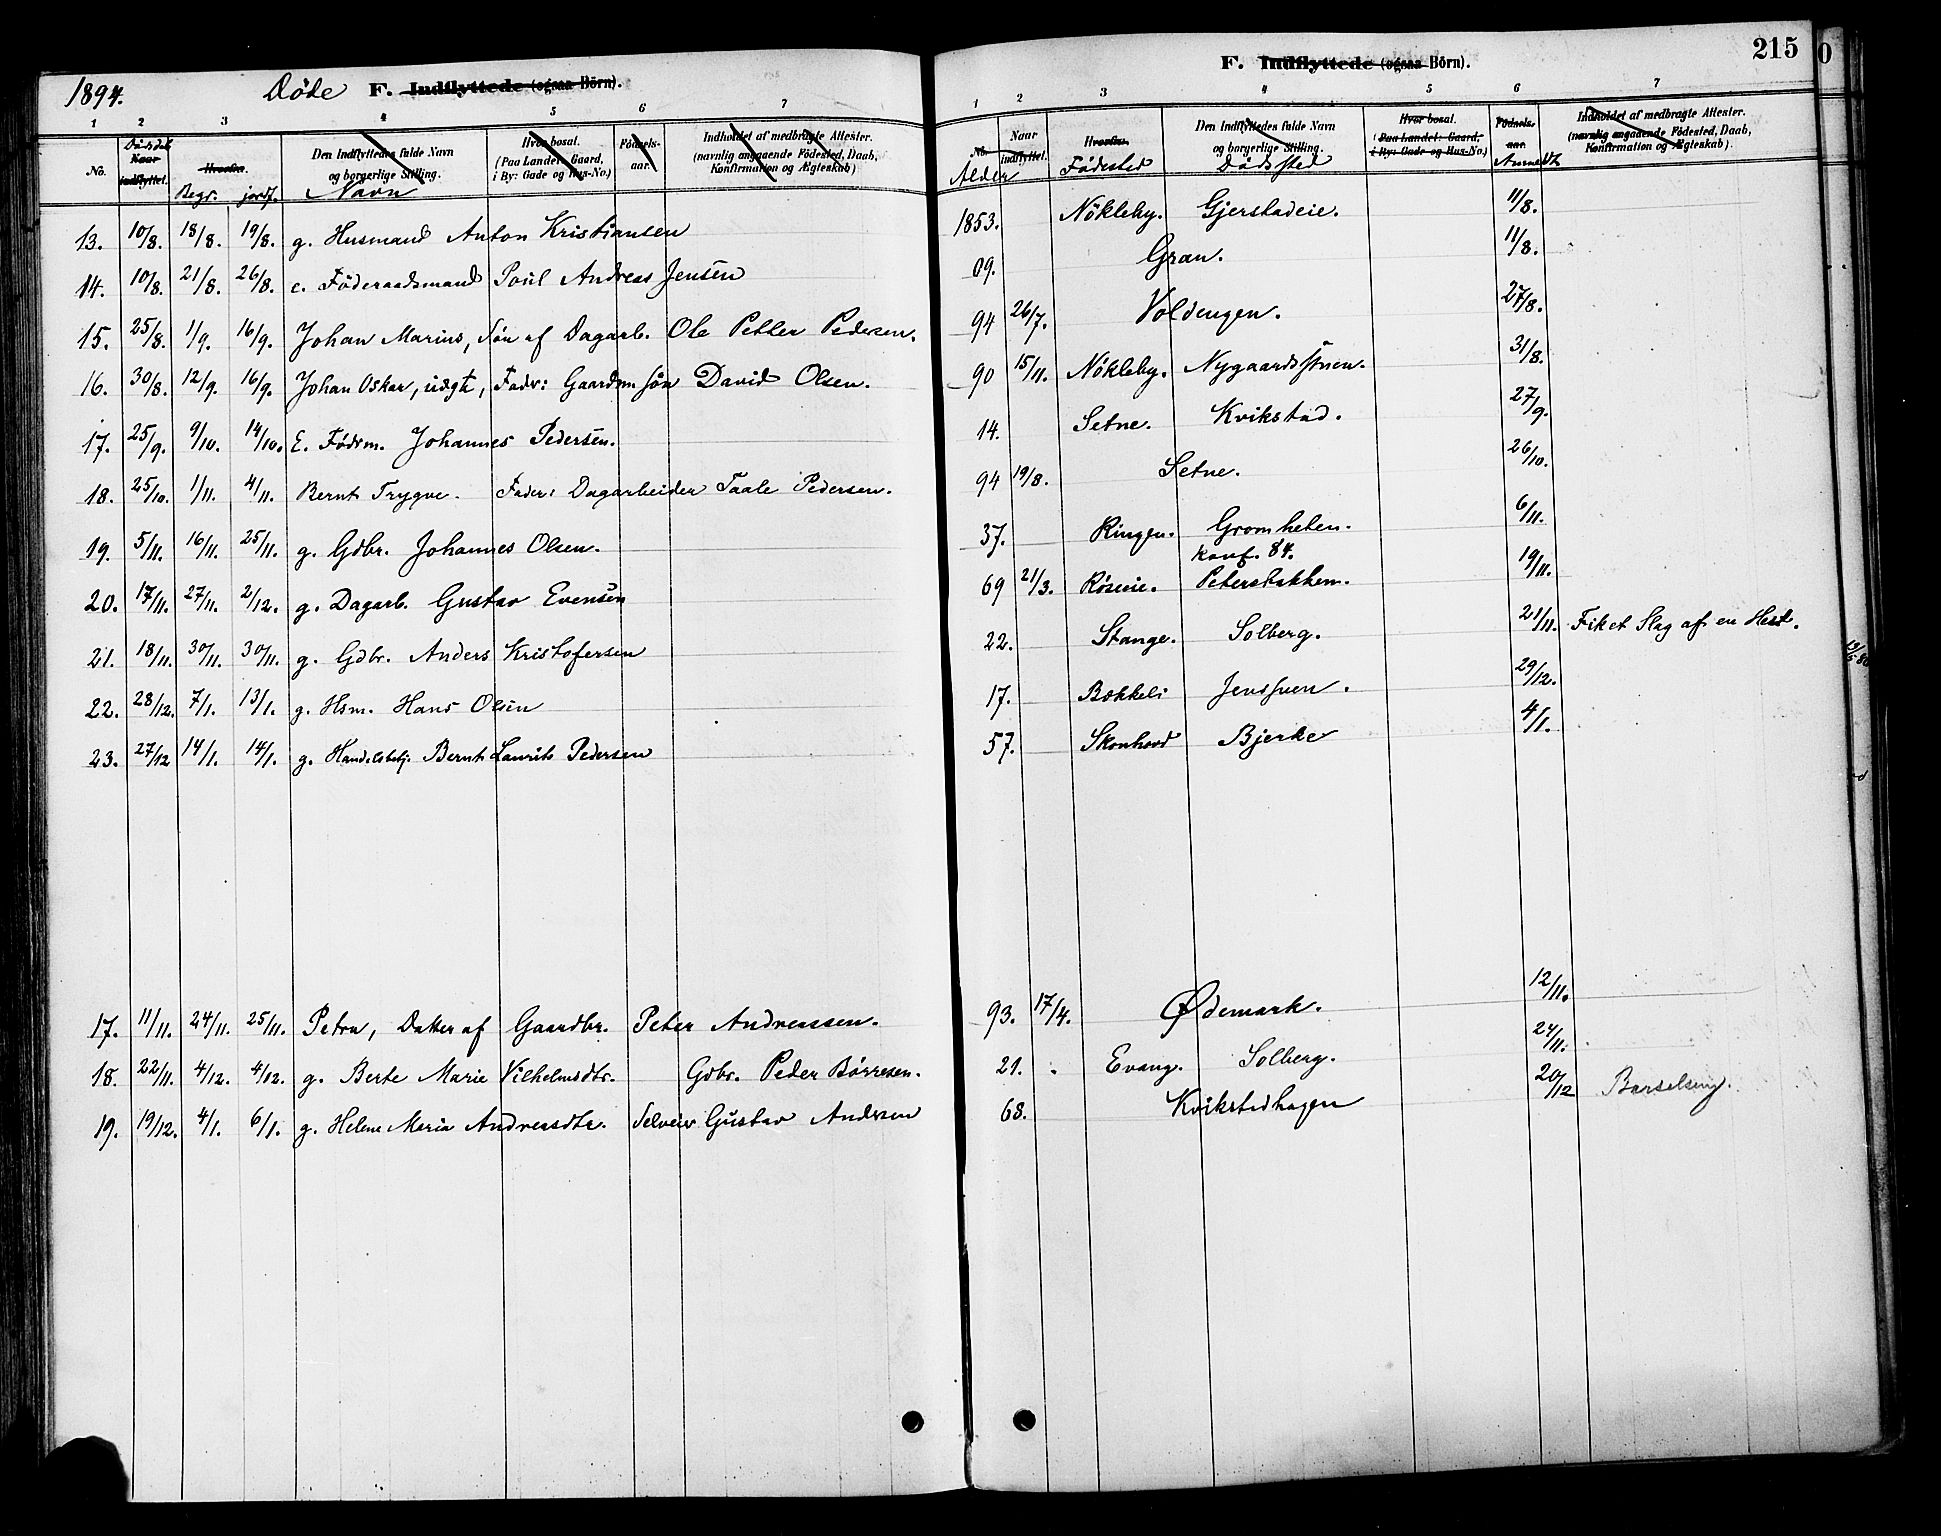 1894. Døde F. Indflyttede (ogsaa Börn).
1 2 3 4 5 6 7
No. Dødsdat Naar indflyttet. Hvorfra. Begr. jordf. Den Indflyttedes fulde Navn og borgerlige Stilling. Navn Hvor bosat. (Paa Landet: Gaard, i By: Gade og Hus-No.) Födselsaar. Indholdet af medbragte Attester. (navnlig angaaende Födested, Daab, Konfirmation og Ægteskab)
13. 10/8. 18/8. 19/8. g. Husmand Anton Kristiansen
14. 10/8. 21/8. 26/8. e. Føderaadsmand Poul Andreas Jensen
15. 25/8. 1/9. 16/9. Johan Marius, Søn af Dagarb. Ole Petter Pedersen.
16. 30/8. 12/9. 16/9. Johan Oskar, uægte, Fader: Gaardm. søn David Olsen.
17. 25/9. 9/10. 14/10. E. Fødrm. Johannes Pedersen.
18. 25/10. 1/11. 4/11. Bernt Trygve. Fader: Dagarbeider Taale Pedersen.
19. 5/11. 16/11. 25/11. g. Gdbr. Johannes Olsen.
20. 17/11. 27/11. 2/12. g. Dagarb. Gustav Evensen
21. 18/11. 30/11. 30/11. g. Gdbr. Anders Kristofersen
22. 28/12. 7/1. 13/1. g. Hsm. Hans Olsen
23. 27/12 14/1. 14/1. g. Handelsbetj. Bernt Laurits Pedersen
17. 11/11. 24/11. 25/11. Petra, Datter af Gaardbr. Peter Andreassen.
18. 22/11. 4/12. 4/12. g. Berte Marie Vilhelmsdtr. Gdbr. Peder Børresen.
19. 19/12. 4/1. 6/1. g. Helene Maria Andreasdtr. Selveier Gustav Andersen
F. Indflyttede (ogsaa Börn). 215
1 2 3 4 5 6 7
No. Alder Naar indflyttet. Hvorfra. Fødested Den Indflyttedes fulde Navn og borgerlige Stilling. Dødssted Hvor bosat. (Paa Landet: Gaard, i By: Gade og Hus-No.) Födselsaar. Anmeldt Indholdet af medbragte Attester. (navnlig angaaende Födested, Daab, Konfirmation og Ægteskab).
1853. Nökleby. Gjerstadeie. 11/8.
09. Gran. 11/8.
94 26/7. Voldengen. 27/8.
90 15/11. Nökleby. Nygaardsstuen. 31/8.
14. Setne. Kvikstad. 27/9.
94 19/8. Setne. 26/10.
37. Ringen. Gromheten. 6/11.
konf. 84.
69 21/3. Røseie. Petersbakken. 19/11.
22. Stange. Solberg. 21/11. Fik et Slag af en Hest.
17. Bækkeli 29/12.
57. Skonhovd Bjerke 4/1.
93. 17/4. Ødemark. 12/11.
21. Evang. Solberg. 24/11.
68. Kvikstadhagen 20/12 Barselseng.